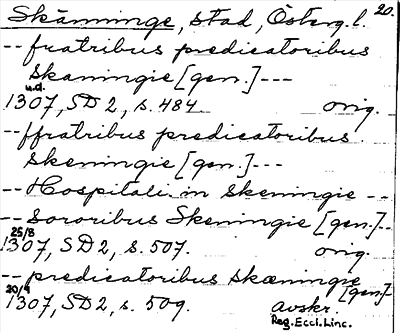 Skänninge, stad, Österg. l. 20.
-- fratribus predicatoribus
Skaningie [gen.] ---
u.d.
1307, SD 2, s. 484 orig.
-- ffratribus predicatoribus
Skeningie [gen.] ---
-- Hospitali in Skeningie --
-- sororibus Skeningie [gen.] --
25/8
1307, SD 2, s. 507. orig.
-- predicatoribus skæningie
[gen.] -
20/9
1307, SD 2, s. 509. avskr.
Reg. Eccl. Linc.